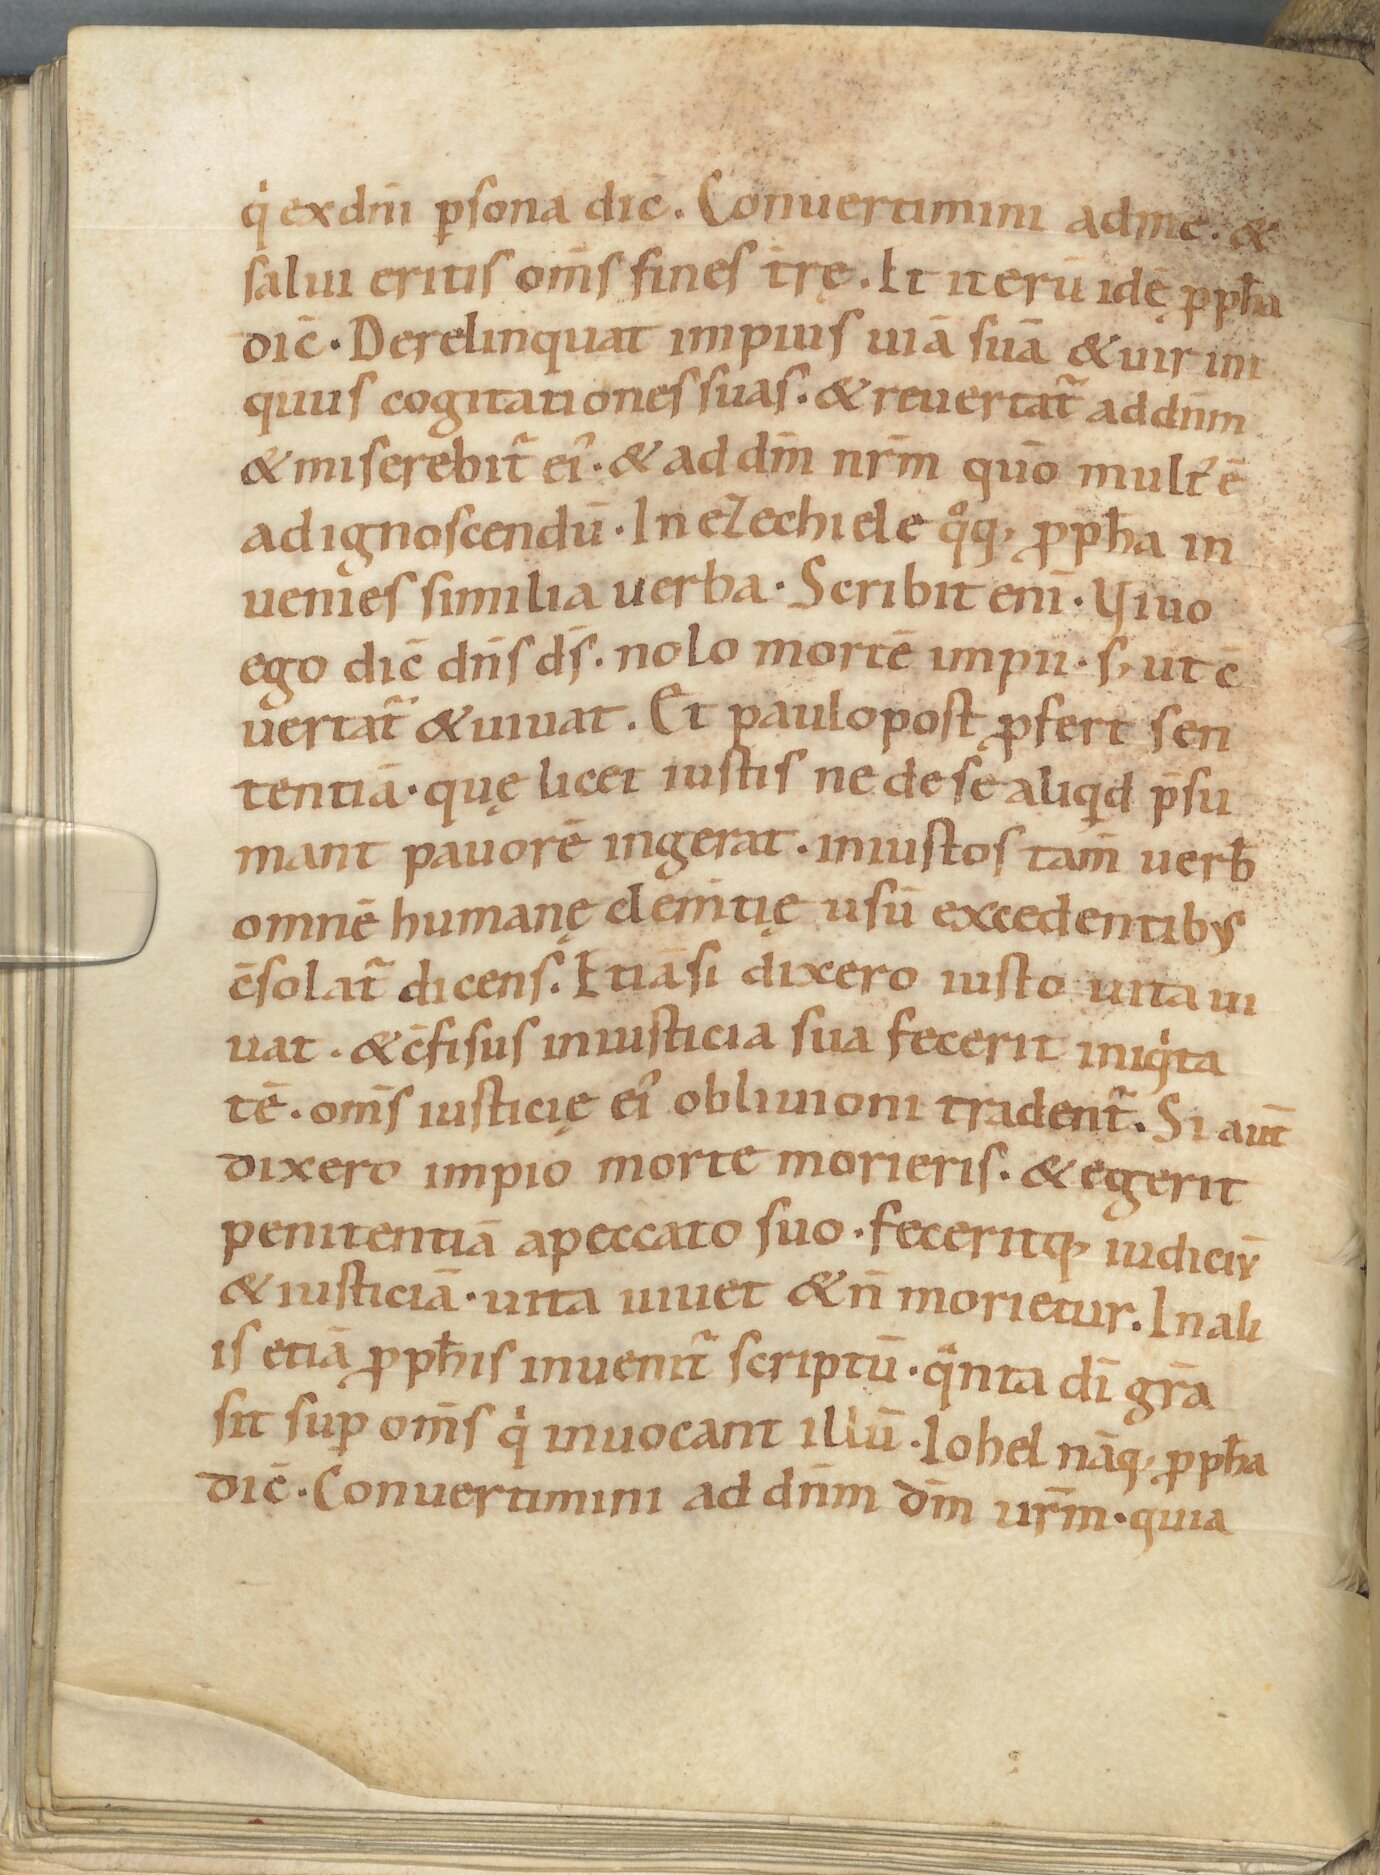 q̇ exdn̄i ꝑsona dic̄. Conuertimini adme. &
salui eritis om̄s fines tr̄ę. Et iterū idē ꝓph̄a
dic̄. Derelinquat impius uiā suā & uir ini
quus cogitationes suas. & reuertat᷑ addn̄m
& miserebit᷑ ei᾽. & ad dm̄ nr̄m qūo mult᾽ ē
adignoscendū. In ezechiele qͦq, ꝓph̄a in
uenies similia uerba. Scribit eni̅. Viuo
ego dic̄ dn̄s ds̄. nolo mortē impii. s, ut c̄
uertat᷑ & uiuat. Et paulopost ꝓfert sen
tentiā. quę licet iustis ne de se aliqd p̄su
mant pauorē ingerat. iniustos tam̄ uerb̄
omnē humanę clem̄tię usū excedentibus
c̄solat᷑ dicens. Etiāsi dixero iusto uita ui
uat. & c̄fisus iniusticia sua fecerit iniq̇ta
tē. om̄s iusticię ei᾽ obliuioni tradent᷑. Si aut̄
dixero impio morte morieris. & egerit
penitentiā apeccato suo. feceritq, iudiciū
& iusticiā. uita uiuet & n̄ morietur. In ali
is etiā ꝓph̄is inuenit᷑ scriptū. qͣnta dī gr̄a
sit suꝑ om̄s q̇ inuocant illū. Iohel nāq, ꝓph̄a
dic̄. Conuertimini ad dn̄m dm̄ ur̄m. quia